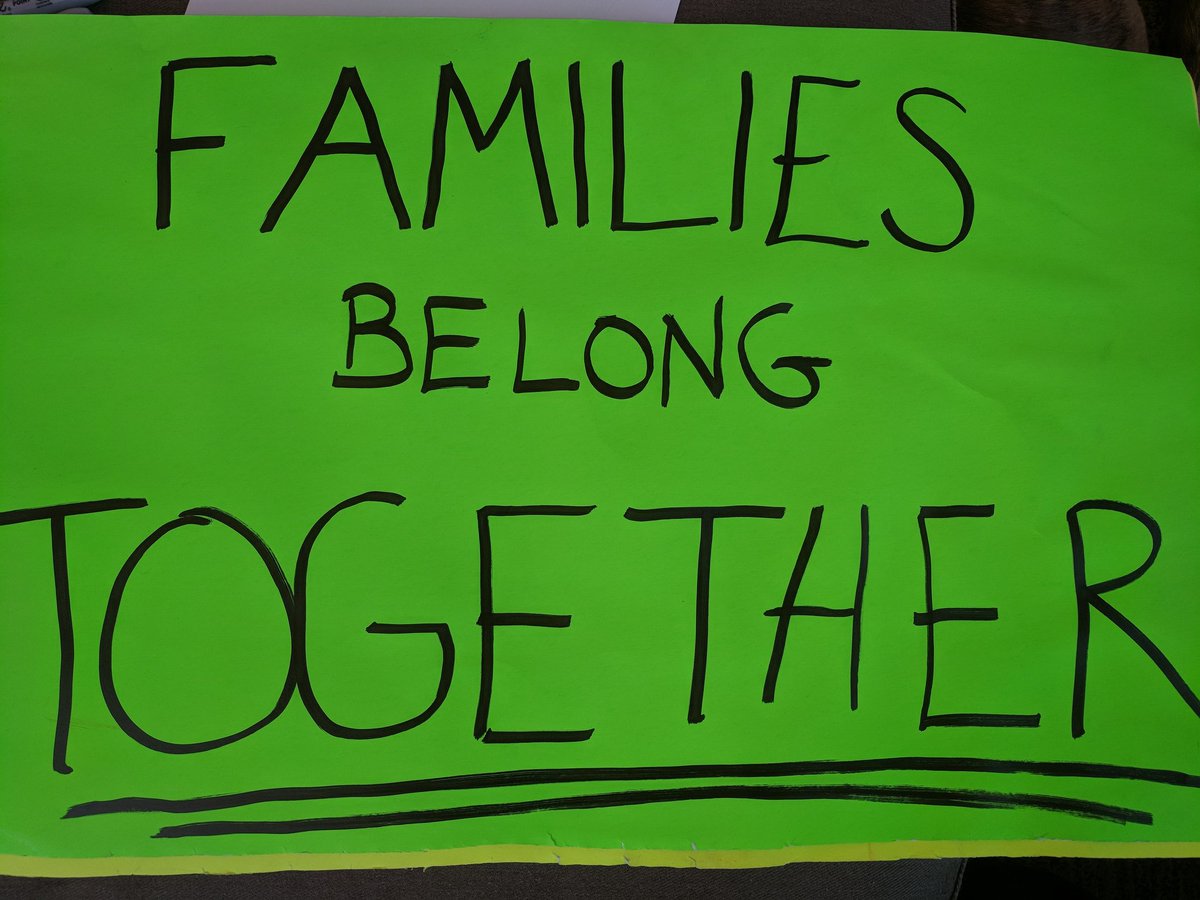 FAMILIES
BELONG
TOGETHER